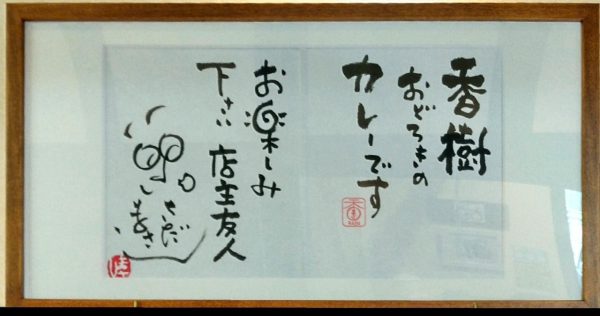 香樹
おどろきの
カレーです
お楽しみ
下さい
店主友人
さだ
まさし